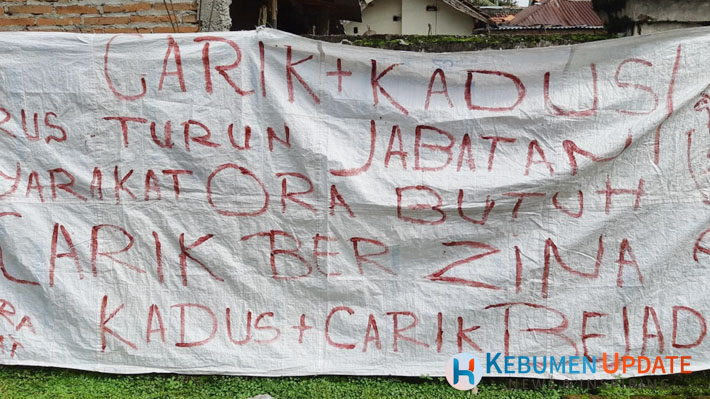 CARIK+KADUS
RUS TURUN JABATAN
YARAKAT ORA BUTUH
CARIK BER ZINA
KADUS+CARIK BEJAD
KEBUMEN UPDATE